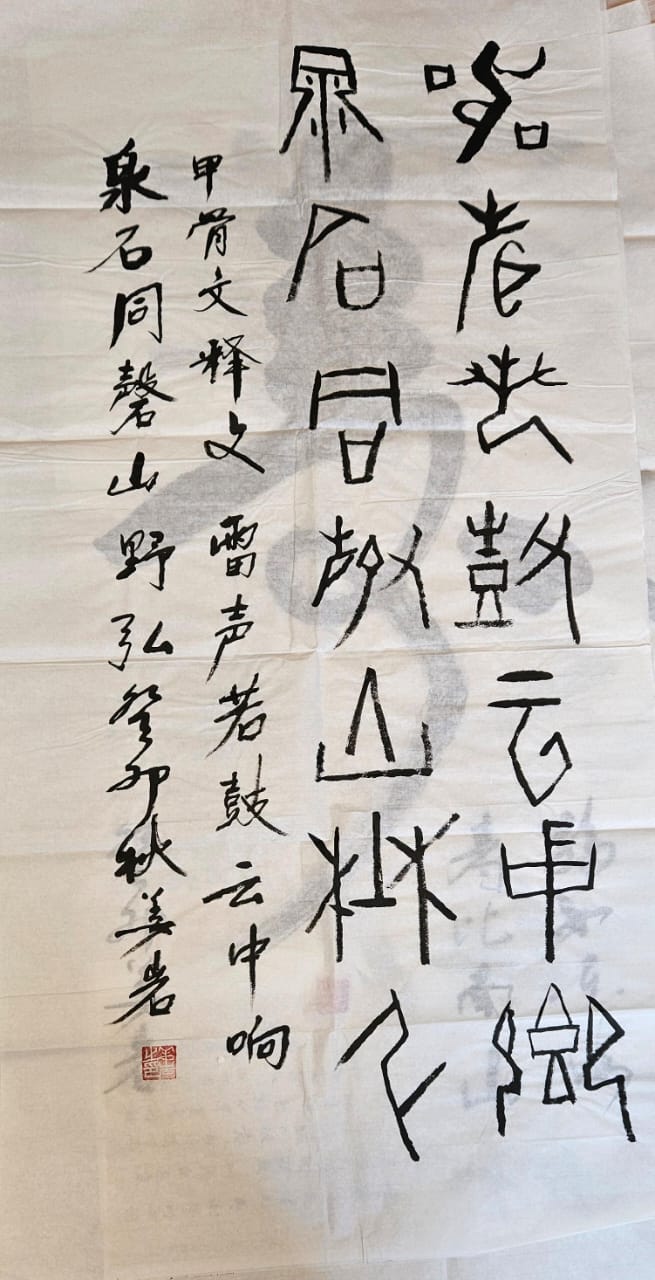 雷声若鼓云中响
泉石同磬山野弘
甲骨文释文 雷声若鼓云中响
泉石同磬山野弘 癸卯秋姜岩